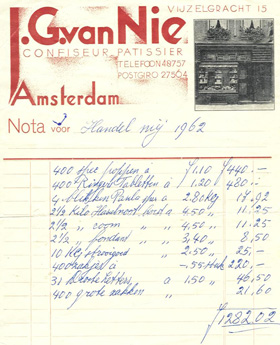 J.G. van Nie
VIJZELGRACHT 15
CONFISEUR PATISSIER
TELEFOON 48757
POSTGIRO 27504
Amsterdam
Nota voor Handel mij 1962
400 spee poppen a ƒ1.10 ƒ440.-
400 Tabletten a 1.20 480.-
4 a 2.80 Kg 17.92
2½ Kilo Hazelnoot a 4,50 " 11.25
2½ " room " 4,50 " 11.25
2½ " fondant " 3,40 " 8,50
10 Kg strooigoed " 2.50 " 25.-
400 a -.55 220,-
31 Letters a 1,50 " 46,50
400 grote zakken " 21,60
ƒ1282.02